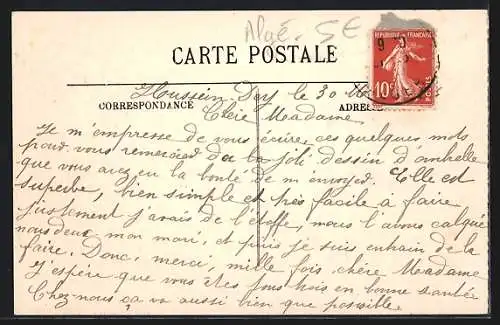 Algé. 5€
CARTE POSTALE
REPUBLIQUE FRANÇAISE
10c
POSTES
Houssein Dey le 30
CORRESPONDANCE
ADRESSE
Chère Madame,
Je m'empresse de vous écrire ces quelques mots
pour vous remercier du joli dessin d'ombrelle
que vous avez eu la bonté de m'envoyer. Elle est
superbe, bien simple et très facile a faire
Justement j'avais de l'étoffe, nous l'avons calqué
nous deux mon mari, et puis je suis entrain de la
faire. Donc, merci, mille fois chère Madame
J'espère que vous êtes tous trois en bonne santée
Chez nous ça va aussi bien que possible.